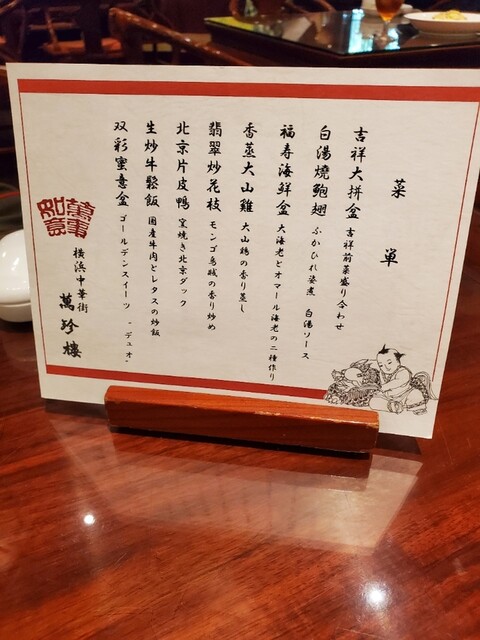 菜単
吉祥大拼盆 吉祥前菜盛り合わせ
白湯燒鮑翅 ふかひれ姿煮 白湯ソース
福寿海鮮盆 大海老とオマール海老の二種作り
香蒸大山雞 大山鶏の香り蒸し
翡翠炒花枝 モンゴ烏賊の香り炒め
北京片皮鴨 窯焼き北京ダック
生炒牛鬆飯 国産牛肉とレタスの炒飯
双彩蜜意盆 ゴールデンスイーツ "デュオ"
萬事如意
横浜中華街
萬珍樓